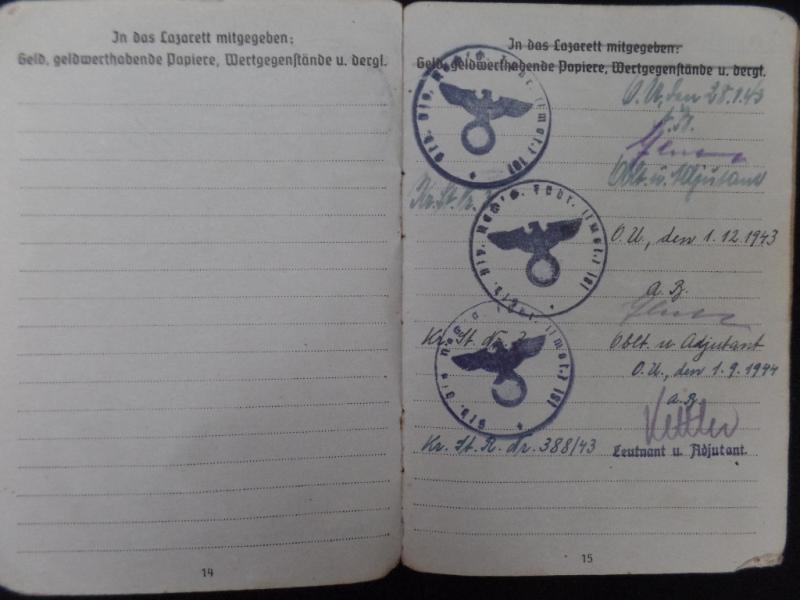 In das Lazarett mitgegeben:
Geld, geldwerthabende Papiere, Wertgegenstände u. dergl.
14
In das Lazarett mitgegeben:
Geld, geldwerthabende Papiere, Wertgegenstände u. dergl.
O.U., den 28.1.43
Oblt. u. Adjutant
Kr. St. Nr.
O.U., den 1.12.1943
a. B.
Kr. St. Nr.
Oblt. u Adjutant
O.U., den 1.9.1944
a. B.
Kr. St. R. Nr. 388/43
Leutnant u. Adjutant.
15